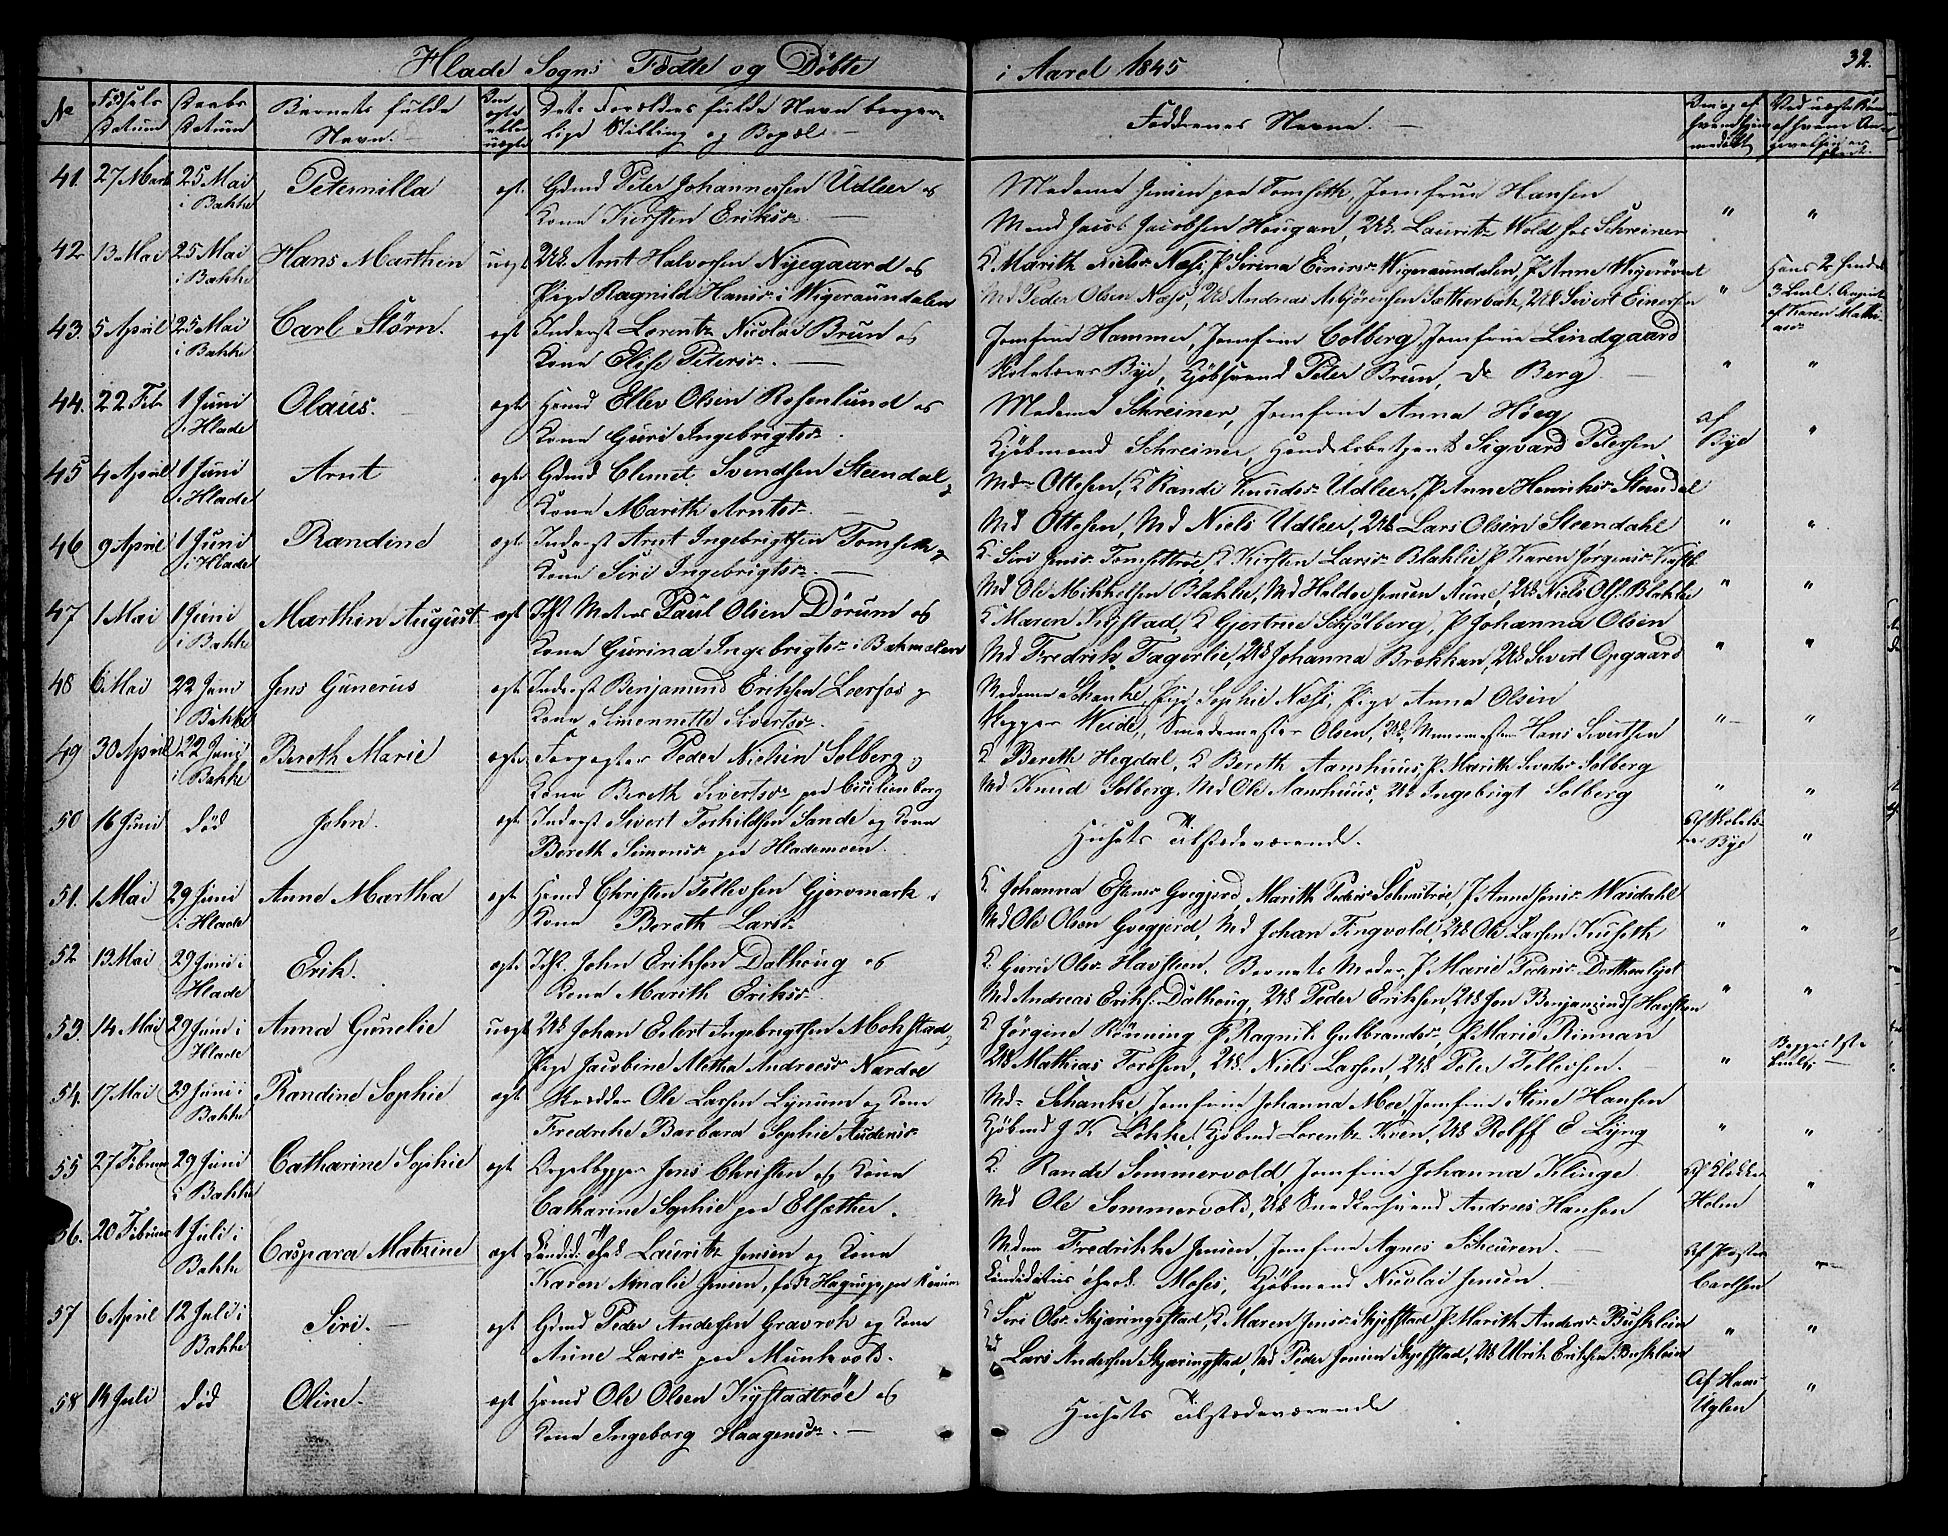 Hlade Sogns Fødte og Døbte i Aaret 1845 32.
No Fødsels Datum Daabs Datum Barnets fulde Navn. Om ægte eller uægte Dets Forældres fulde Navn borgerlige Stilling og Bopæl Faddernes Navne.
41. 27 Marts 25 Mai i Bakke Peternilla ægt. Gdmd Peder Johannessen Udleer og
Kone Kiersten Eriksdr.
Madame Jensen paa Tomseth, Jomfrue Hansen
Mand Jacob Jacobsen Haugan, Uk Lauritz Wold hos Schreiner " "
42 13 Mai 25 Mai i Bakke Hans Marthin uægt Uk Arnt Halvorsen Nyegaard og
Pige Ragnild Hansdr i Wigeraundalen
K Marith Nielsdr Næss, P Sirena Einersdr Wigeraundalen, P Anne
Md Peder Olsen Næss, Uk Andreas Asbjørnsen Sætherbak, Uk Sivert Einersen "
43. 5 April 25 Mai i Bakke Carl Størn. ægt Inderst Lorentz Nicolai Brun og
Kone Elise Petersdr.
Jomfrue Hammer, Jomfrue Colberg, Jomfrue Lindgaard
Skolelærer Bye, Kjøbsvend Peter Brun, Do Berg " "
44. 22 Feb 1 Juni i Hlade Olaus. ægt Hmd Ellev Olsen Rosenlund og
Kone Guri Ingebrigtsdr.
Madame Schreiner, Jomfrue Anna Høeg
Kjøbmand Schreiner, Handelsbetjent Sigvard Petersen af Bye "
45 4 April 1 Juni i Hlade Arnt ægt Gdmd Clemet Svendsen Steendal,
Kone Marith Arntsdr.
Mdm Ottesen, K Randi Knudsdr Udleer, P Anne Henriksdr Steendal
Md Ottesen, Md Niels Udleer, Uk Lars Olsen Steendahl " "
46 9 April 1 Juni i Hlade Randine ægt Inderst Arnt Ingebrigtsen Tomseth
Kone Siri Ingebrigtsdr.
K. Siri Jensdr Tomsettrøe, K Kirsten Larsdr Blaklie, P Karen Jørgensdr
Md Ole Mikkelsen Blaklie, Md Haldor Jensen Aune, Uk Niels Ols. Blaklie " "
47 1 Mai 1 Juni i Bakke Marthin August ægt Paul Olsen Dørum og
Kone Gurina Ingebrigtsdr i Bakmoelen
K Maren Kigstad, K Gjertrue Schjølberg, P Johanna Olsen
Md Fredrik Fagerlie, Uk Johanna Brækhan, Uk Sivert Opgaard " "
48 6 Mai 22 Juni i Bakke Jens Gunerus ægt Inderst Benjamind Eriksen Leerfos og
Kone Simonnette Sivertsdr.
Madame Schanke, Pige Sophie Næss, Pige Anna Olsen
Skipper Weide, Smedemester Olsen, Uk Muurmester Hans Sivertsen " "
49 30 April 22 Juni i Bakke Bereth Marie ægt Forpagter Peder Nielsen Solberg og
Kone Bereth Sivertsdr paa Cicilienborg
K Bereth Hegdal, K Bereth Aamhuus, P Marith Sivertsdr Solberg
Md Knud Solberg, Md Ole Aamhuus, Uk Ingebrigt Solberg " "
50 16 Juni død John. ægt Inderst Sivert Torkildsen Sande og Kone
Bereth Simonsdr paa Hlademoen.
Huusets Tilstædeværende. Af Skolelærer Bye "
51. 1 Mai 29 Juni i Hlade Anne Martha ægt Hmd Christen Tellevsen Gjervmark og
Kone Bereth Larsdr.
K. Johanna Gvegjerd, Marith Pedersdr, P Anne Jensdr Waidahl
Md Ole Olsen Gvegjerd, Md Johan Tingvold, Uk Ole Larsen Kuseth " "
52 13 Mai 29 Juni i Hlade Erik. ægt. John Eriksen Dalhoug og
Kone Marith Eriksdr.
K. Gurie Olsdr Havsteen, Barnets Moder, P Marie Pedersdr Dorthealyst
Md Andreas Eriks: Dalhoug, Uk Peder Eriksen, Uk Jon Benjamins. Havsteen " "
53. 14 Mai 29 Juni i Hlade Anna Gunelie uægt Uk Johan Eilert Ingebrigtsen Mohstad,
Pige Jacobine Aletha Andreasdr Nardoe
K Jørgine Rønning, P Ragnil Gulbrandsdr, P Marie Rinnan
Uk Mathias Torksen, Uk. Niels Larsen, Uk Peter Tellevsen. " Begges 1ste
54. 17 Mai 29 Juni i Bakke Randine Sophie ægt Skrædder Ole Larsen Lynum og Kone
Fredrike Barbara Sophie Andersdr
Mdm Schanke, Jomfrue Johanna Moe, Jomfrue Stine Hansen
Kjøbmd J K Løkke, Kjøbmd Lorentz Kven, Uk Rolff E Lyng " "
55 27 Februar 29 Juni i Bakke Catharine Sophie ægt Orgelbygger Jens Christen og Kone
Catharine Sophie paa Elsæther.
K. Rande Sommervold, Jomfrue Johanna Klinge
Md Ole Sommervold, Uk Snedkersvend Andreas Hansen Af Klokker Holm "
56. 20 Februar 1 Juli i Bakke Caspara Matzine ægt Candid: theol Lauritz Jensen og Kone
Karen Amalie Jensen, fød Hagrup,
Mdm Fredrikke Jensen, Jomfrue Agnes Scheuren.
Candidatus theol. Moses, Kjøbmand Nicolai Jensen. Af Pastor Carlsen "
57 6 April 12 Juli i Bakke Siri. ægt Gdmd Peder Andersen Gravrok og Kone
Anne Larsdr paa Munkvold.
K Siri Olsdr Skjæringstad, K Maren Jensdr Skjefstad, P Marith Andersdr Busklein
Md Lars Andersen Skjæringstad, Md Peder Jensen Skjefstad, Uk Ulrik Eriksen Busklein " "
58 14 Juli død Oline. ægt Hmd Ole Olsen Kigstadtrøe og
Kone Ingeborg Haagensdr.
Huusets Tilstædeværende Af Hans Uglen "